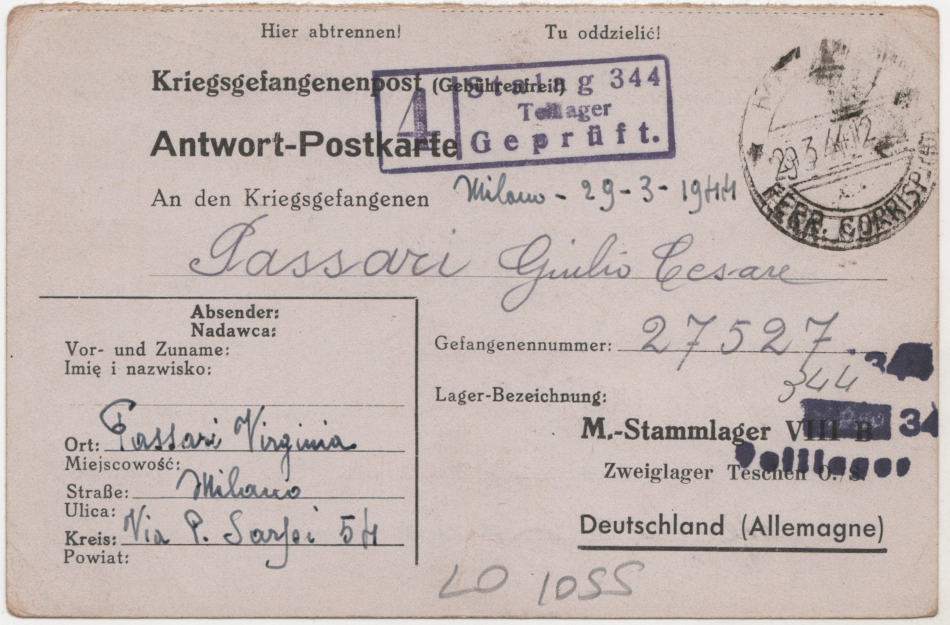 Hier abtrennen! Tu oddzielić!
Kriegsgefangenenpost (Gebührenfrei!)
4 Stalag 344
Teillager
Geprüft.
Antwort-Postkarte
29 3 44 12
FERR. CORRISP
An den Kriegsgefangenen Milano - 29-3-1944
Passari Giulio Cesare
Absender:
Nadawca:
Vor- und Zuname:
Imię i nazwisko:
Gefangenennummer: 27527.
344
Lager-Bezeichnung:
Ort: Passari Virginia
Miejscowość:
M.-Stammlager VIII B 34
Teillager
Straße: Milano
Ulica:
Zweiglager Teschen O./S.
Kreis: Via P. 54
Powiat:
Deutschland (Allemagne)
LO 1055